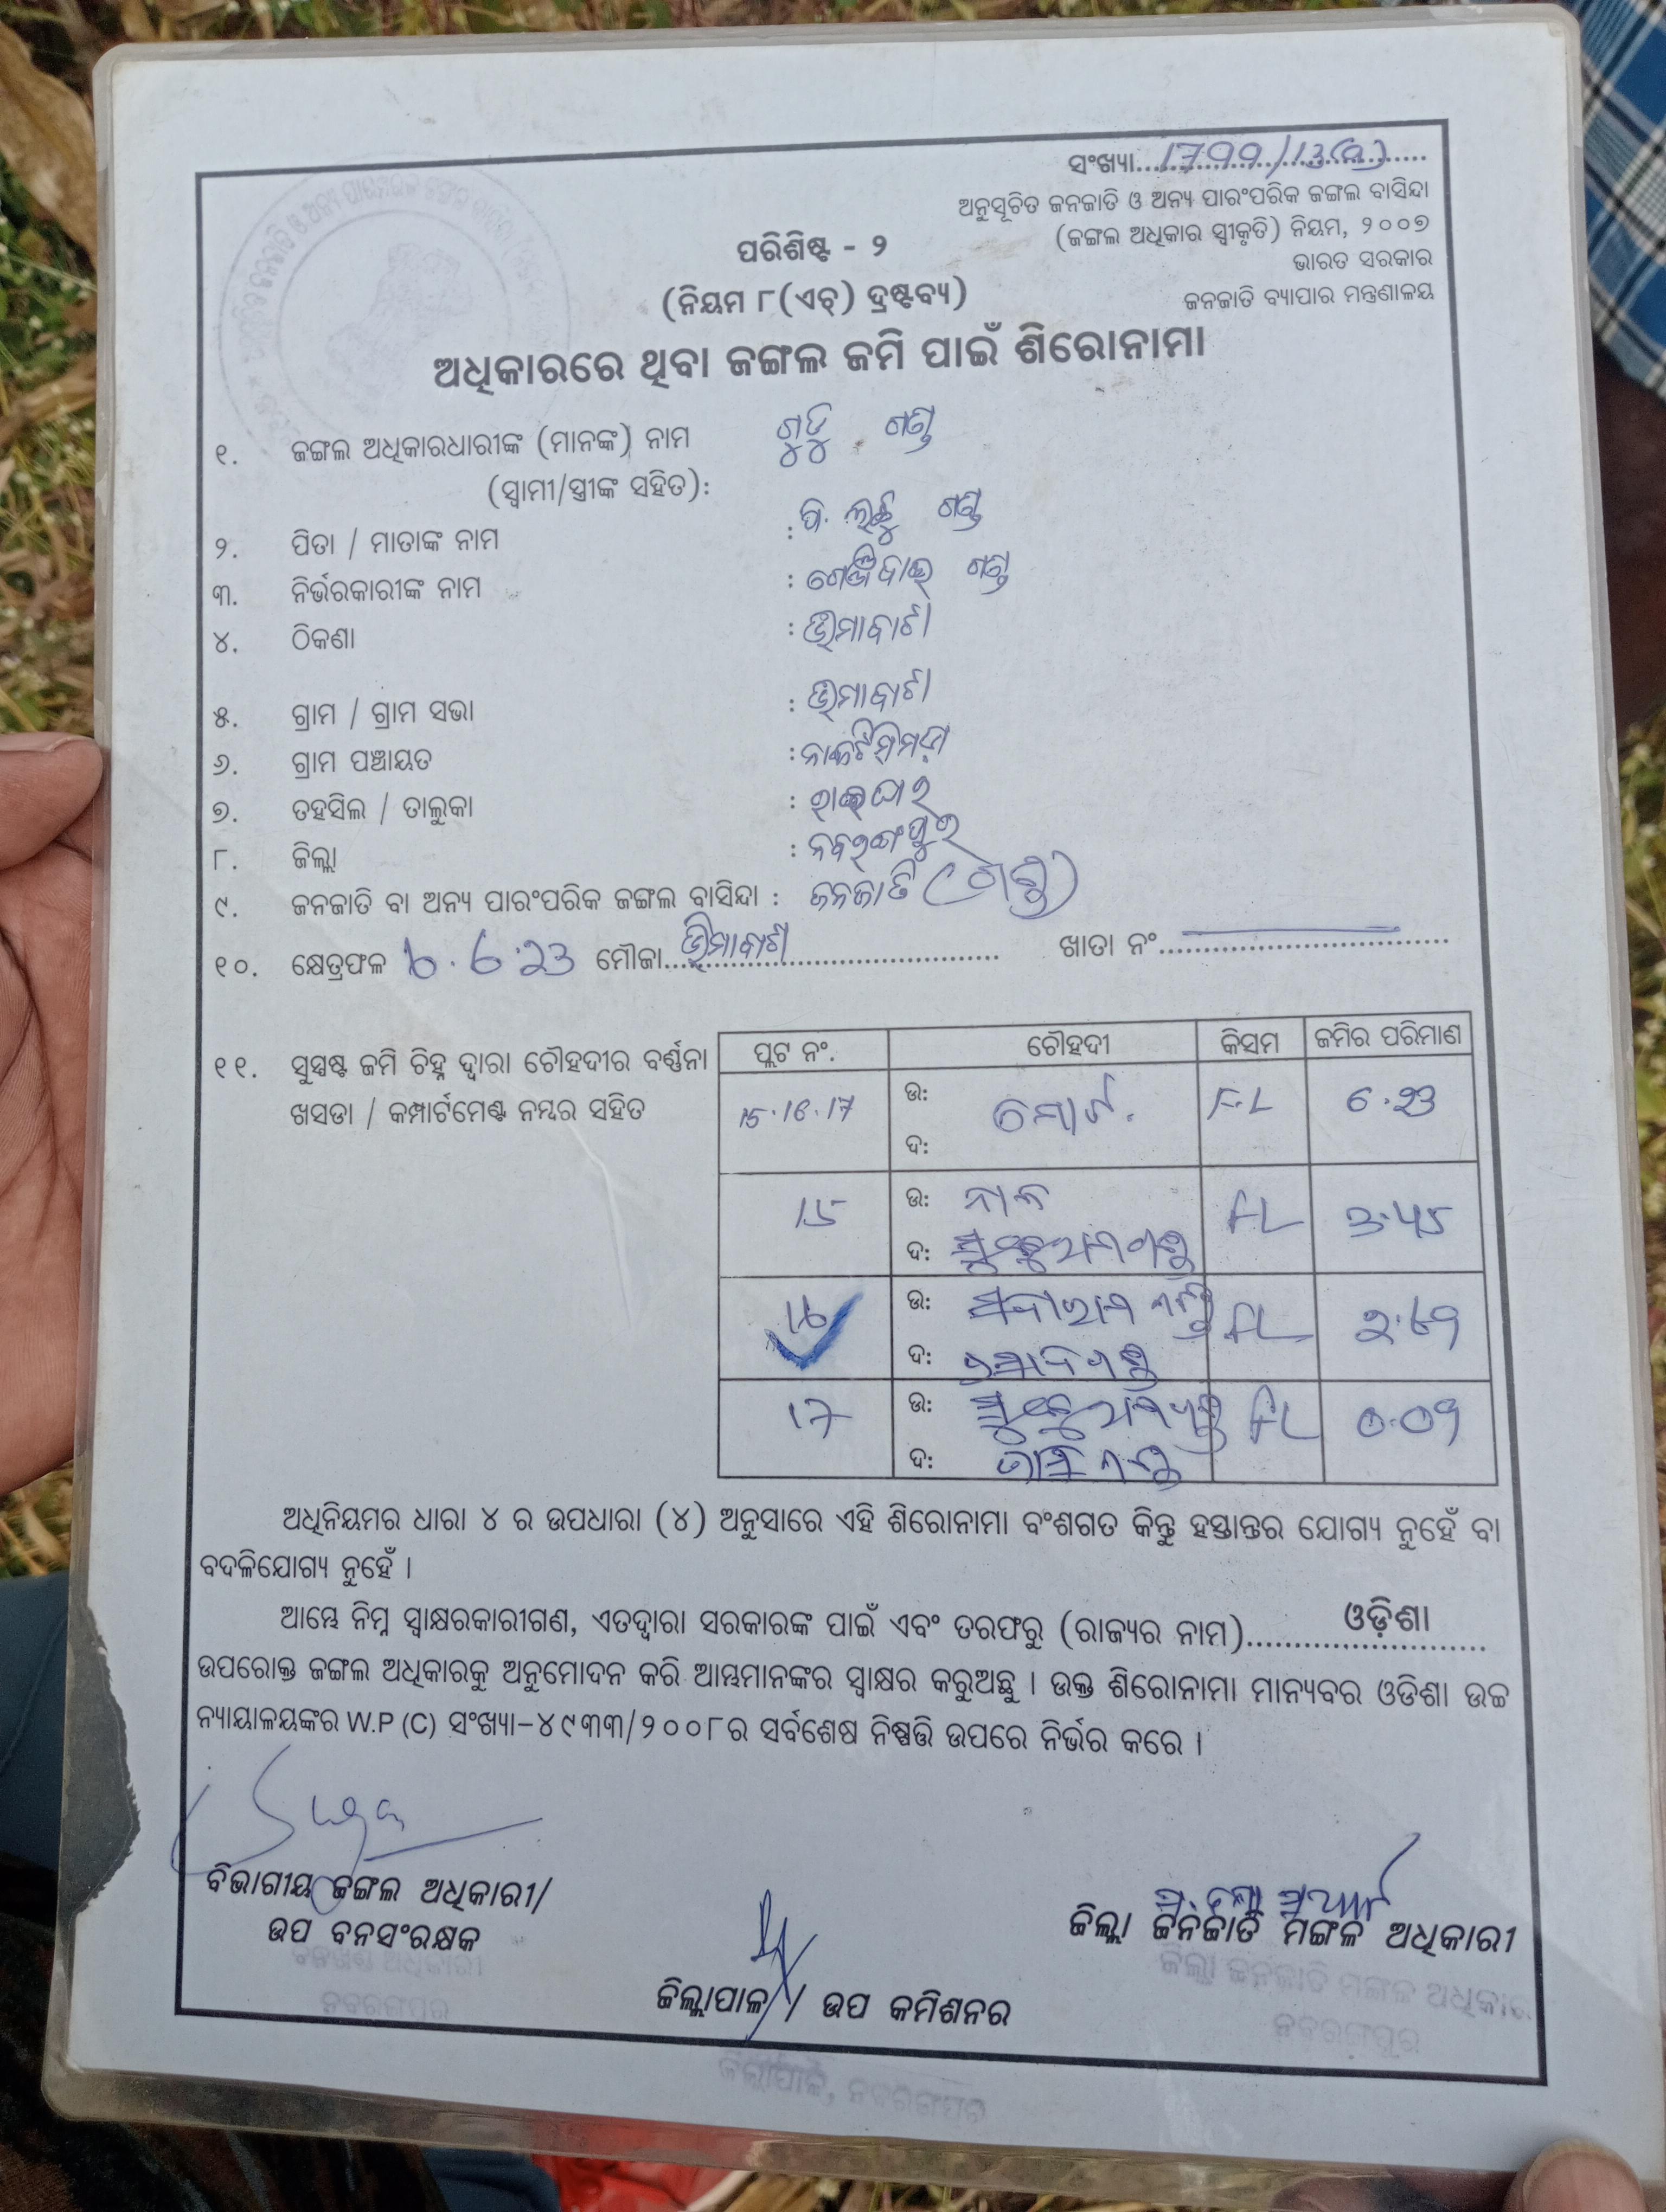 ସଂଖ୍ୟା
ଅନୁସୂଚିତ ଜନଜାତି ଓ ଅନ୍ୟ ପାରଂପରିକ ଜଙ୍ଗଲ ବାସିନ୍ଦା
(ଜଙ୍ଗଲ ଅଧିକାର ସ୍ୱୀକୃତି) ନିୟମ, ୨୦୦୭
ଭାରତ ସରକାର
ଜନଜାତି ବ୍ୟାପାର ମନ୍ତ୍ରଣାଳୟ
ପରିଶିଷ୍ଟ - ୨
(ନିୟମ ୮(ଏଚ୍) ଦ୍ରଷ୍ଟବ୍ୟ)
ଅଧିକାରରେ ଥିବା ଜଙ୍ଗଲ ଜମି ପାଇଁ ଶିରୋନାମା
୧. ଜଙ୍ଗଲ ଅଧିକାରଧାରୀଙ୍କ (ମାନଙ୍କ) ନାମ ଗୁଡୁ ଗଣ୍ଡ
(ସ୍ୱାମୀ/ସ୍ତ୍ରୀଙ୍କ ସହିତ):
୨. ପିତା / ମାତାଙ୍କ ନାମ : ପି. ଲଛୁ ଗଣ୍ଡ
୩. ନିର୍ଭରକାରୀଙ୍କ ନାମ : ଗଣ୍ଡ
୪. ଠିକଣା : ଭିମାବାଟା
୫. ଗ୍ରାମ / ଗ୍ରାମ ସଭା : ଭିମାବାଟା
୬. ଗ୍ରାମ ପଞ୍ଚାୟତ :
୭. ତହସିଲ / ତାଲୁକା : ରାଇଘର
୮. ଜିଲ୍ଲା : ନବରଙ୍ଗପୁର
୯. ଜନଜାତି ବା ଅନ୍ୟ ପାରଂପରିକ ଜଙ୍ଗଲ ବାସିନ୍ଦା : ଜନଜାତି (ଗଣ୍ଡ)
୧୦. କ୍ଷେତ୍ରଫଳ 6.23 ମୌଜା ଭିମାବାଟା ଖାତା ନଂ
୧୧. ସୁସ୍ପଷ୍ଟ ଜମି ଚିହ୍ନ ଦ୍ୱାରା ଚୌହଦୀର ବର୍ଣ୍ଣନା
ଖସଡା / କମ୍ପାର୍ଟମେଣ୍ଟ ନମ୍ବର ସହିତ
ପ୍ଲଟ ନଂ. ଚୌହଦୀ କିସମ ଜମିର ପରିମାଣ
15.16.17 ଉ: ମୋଟ. F.L 6.23
ଦ:
15 ଉ: ନାଳ FL 3.45
ଦ:
16 ଉ: FL
ଦ:
17 ଉ: FL 0.09
ଦ:
ଅଧିନିୟମର ଧାରା ୪ ର ଉପଧାରା (୪) ଅନୁସାରେ ଏହି ଶିରୋନାମା ବଂଶଗତ କିନ୍ତୁ ହସ୍ତାନ୍ତର ଯୋଗ୍ୟ ନୁହେଁ ବା
ବଦଳିଯୋଗ୍ୟ ନୁହେଁ ।
ଆମ୍ଭେ ନିମ୍ନ ସ୍ୱାକ୍ଷରକାରୀଗଣ, ଏତଦ୍ୱାରା ସରକାରଙ୍କ ପାଇଁ ଏବଂ ତରଫରୁ (ରାଜ୍ୟର ନାମ) ଓଡ଼ିଶା
ଉପରୋକ୍ତ ଜଙ୍ଗଲ ଅଧିକାରକୁ ଅନୁମୋଦନ କରି ଆମ୍ଭମାନଙ୍କର ସ୍ୱାକ୍ଷର କରୁଅଛୁ । ଉକ୍ତ ଶିରୋନାମା ମାନ୍ୟବର ଓଡିଶା ଉଚ୍ଚ
ନ୍ୟାୟାଳୟଙ୍କର W.P (C) ସଂଖ୍ୟା-୪୯୩୩/୨୦୦୮ର ସର୍ବଶେଷ ନିଷ୍ପତ୍ତି ଉପରେ ନିର୍ଭର କରେ ।
ବିଭାଗୀୟ ଜଙ୍ଗଲ ଅଧିକାରୀ/
ଉପ ବନସଂରକ୍ଷକ
ଜିଲ୍ଲା ଜନଜାତି ମଙ୍ଗଳ ଅଧିକାରୀ
ଜିଲ୍ଲା ଜନଜାତି ମଙ୍ଗଳ ଅଧିକାରୀ
ନବରଙ୍ଗପୁର
ନବରଙ୍ଗପୁର
ଜିଲ୍ଲାପାଳ / ଉପ କମିଶନର
ଜିଲ୍ଲାପାଳ, ନବରଙ୍ଗପୁର